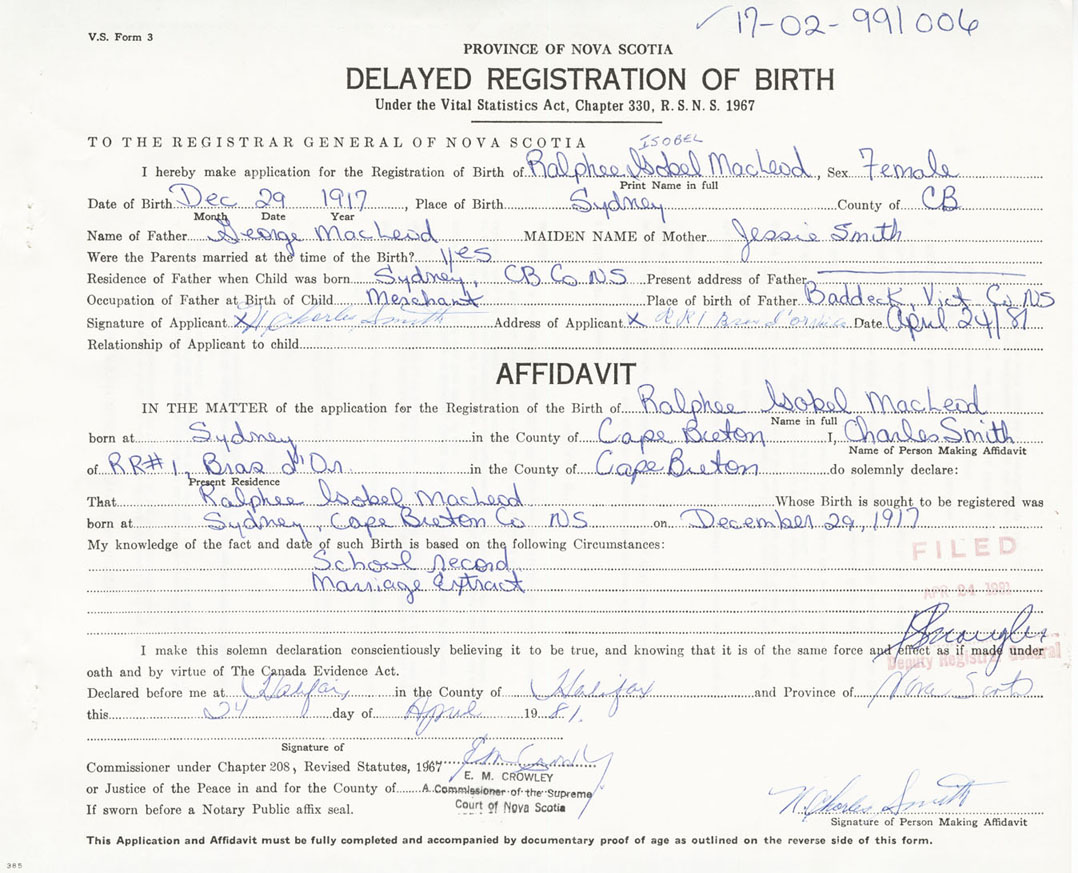 17-02-991006
V.S. Form 3
PROVINCE OF NOVA SCOTIA
DELAYED REGISTRATION OF BIRTH
Under the Vital Statistics Act, Chapter 330, R. S. N. S. 1967
TO THE REGISTRAR GENERAL OF NOVA SCOTIA ISOBEL
I hereby make application for the Registration of Birth of Ralphee Isobel MacLeod, Sex Female
Print Name in full
Date of Birth Dec 29 1917, Place of Birth Sydney County of CB
Month Date Year
Name of Father George MacLeod MAIDEN NAME of Mother Jessie Smith
Were the Parents married at the time of the Birth? yes
Residence of Father when Child was born Sydney, CB Co NS Present address of Father
Occupation of Father at Birth of Child Merchant Place of birth of Father Baddeck, Vict Co NS
Signature of Applicant X Charles Smith Address of Applicant X RR1 Bras d'or Date April 24/81
Relationship of Applicant to child
AFFIDAVIT
IN THE MATTER of the application for the Registration of the Birth of Ralphee Isobel MacLeod
Name in full
born at Sydney in the County of Cape Breton I, Charles Smith
Name of Person Making Affidavit
of RR#1, Bras d'Or in the County of Cape Breton do solemnly declare:
Present Residence
That Ralphee Isobel MacLeod Whose Birth is sought to be registered was
born at Sydney, Cape Breton Co NS on December 29, 1917
My knowledge of the fact and date of such Birth is based on the following Circumstances:
School record
Marriage Extract
FILED
APR 24 1981
I make this solemn declaration conscientiously believing it to be true, and knowing that it is of the same force and effect as if made under
Deputy Registrar General
oath and by virtue of The Canada Evidence Act.
Declared before me at Halifax in the County of Halifax and Province of Nova Scotia
this 24 day of April 1981.
Signature of
Commissioner under Chapter 208, Revised Statutes, 1967
E. M. CROWLEY
or Justice of the Peace in and for the County of A Commissioner of the Supreme
Court of Nova Scotia
If sworn before a Notary Public affix seal.
Charles Smith
Signature of Person Making Affidavit
This Application and Affidavit must be fully completed and accompanied by documentary proof of age as outlined on the reverse side of this form.
385